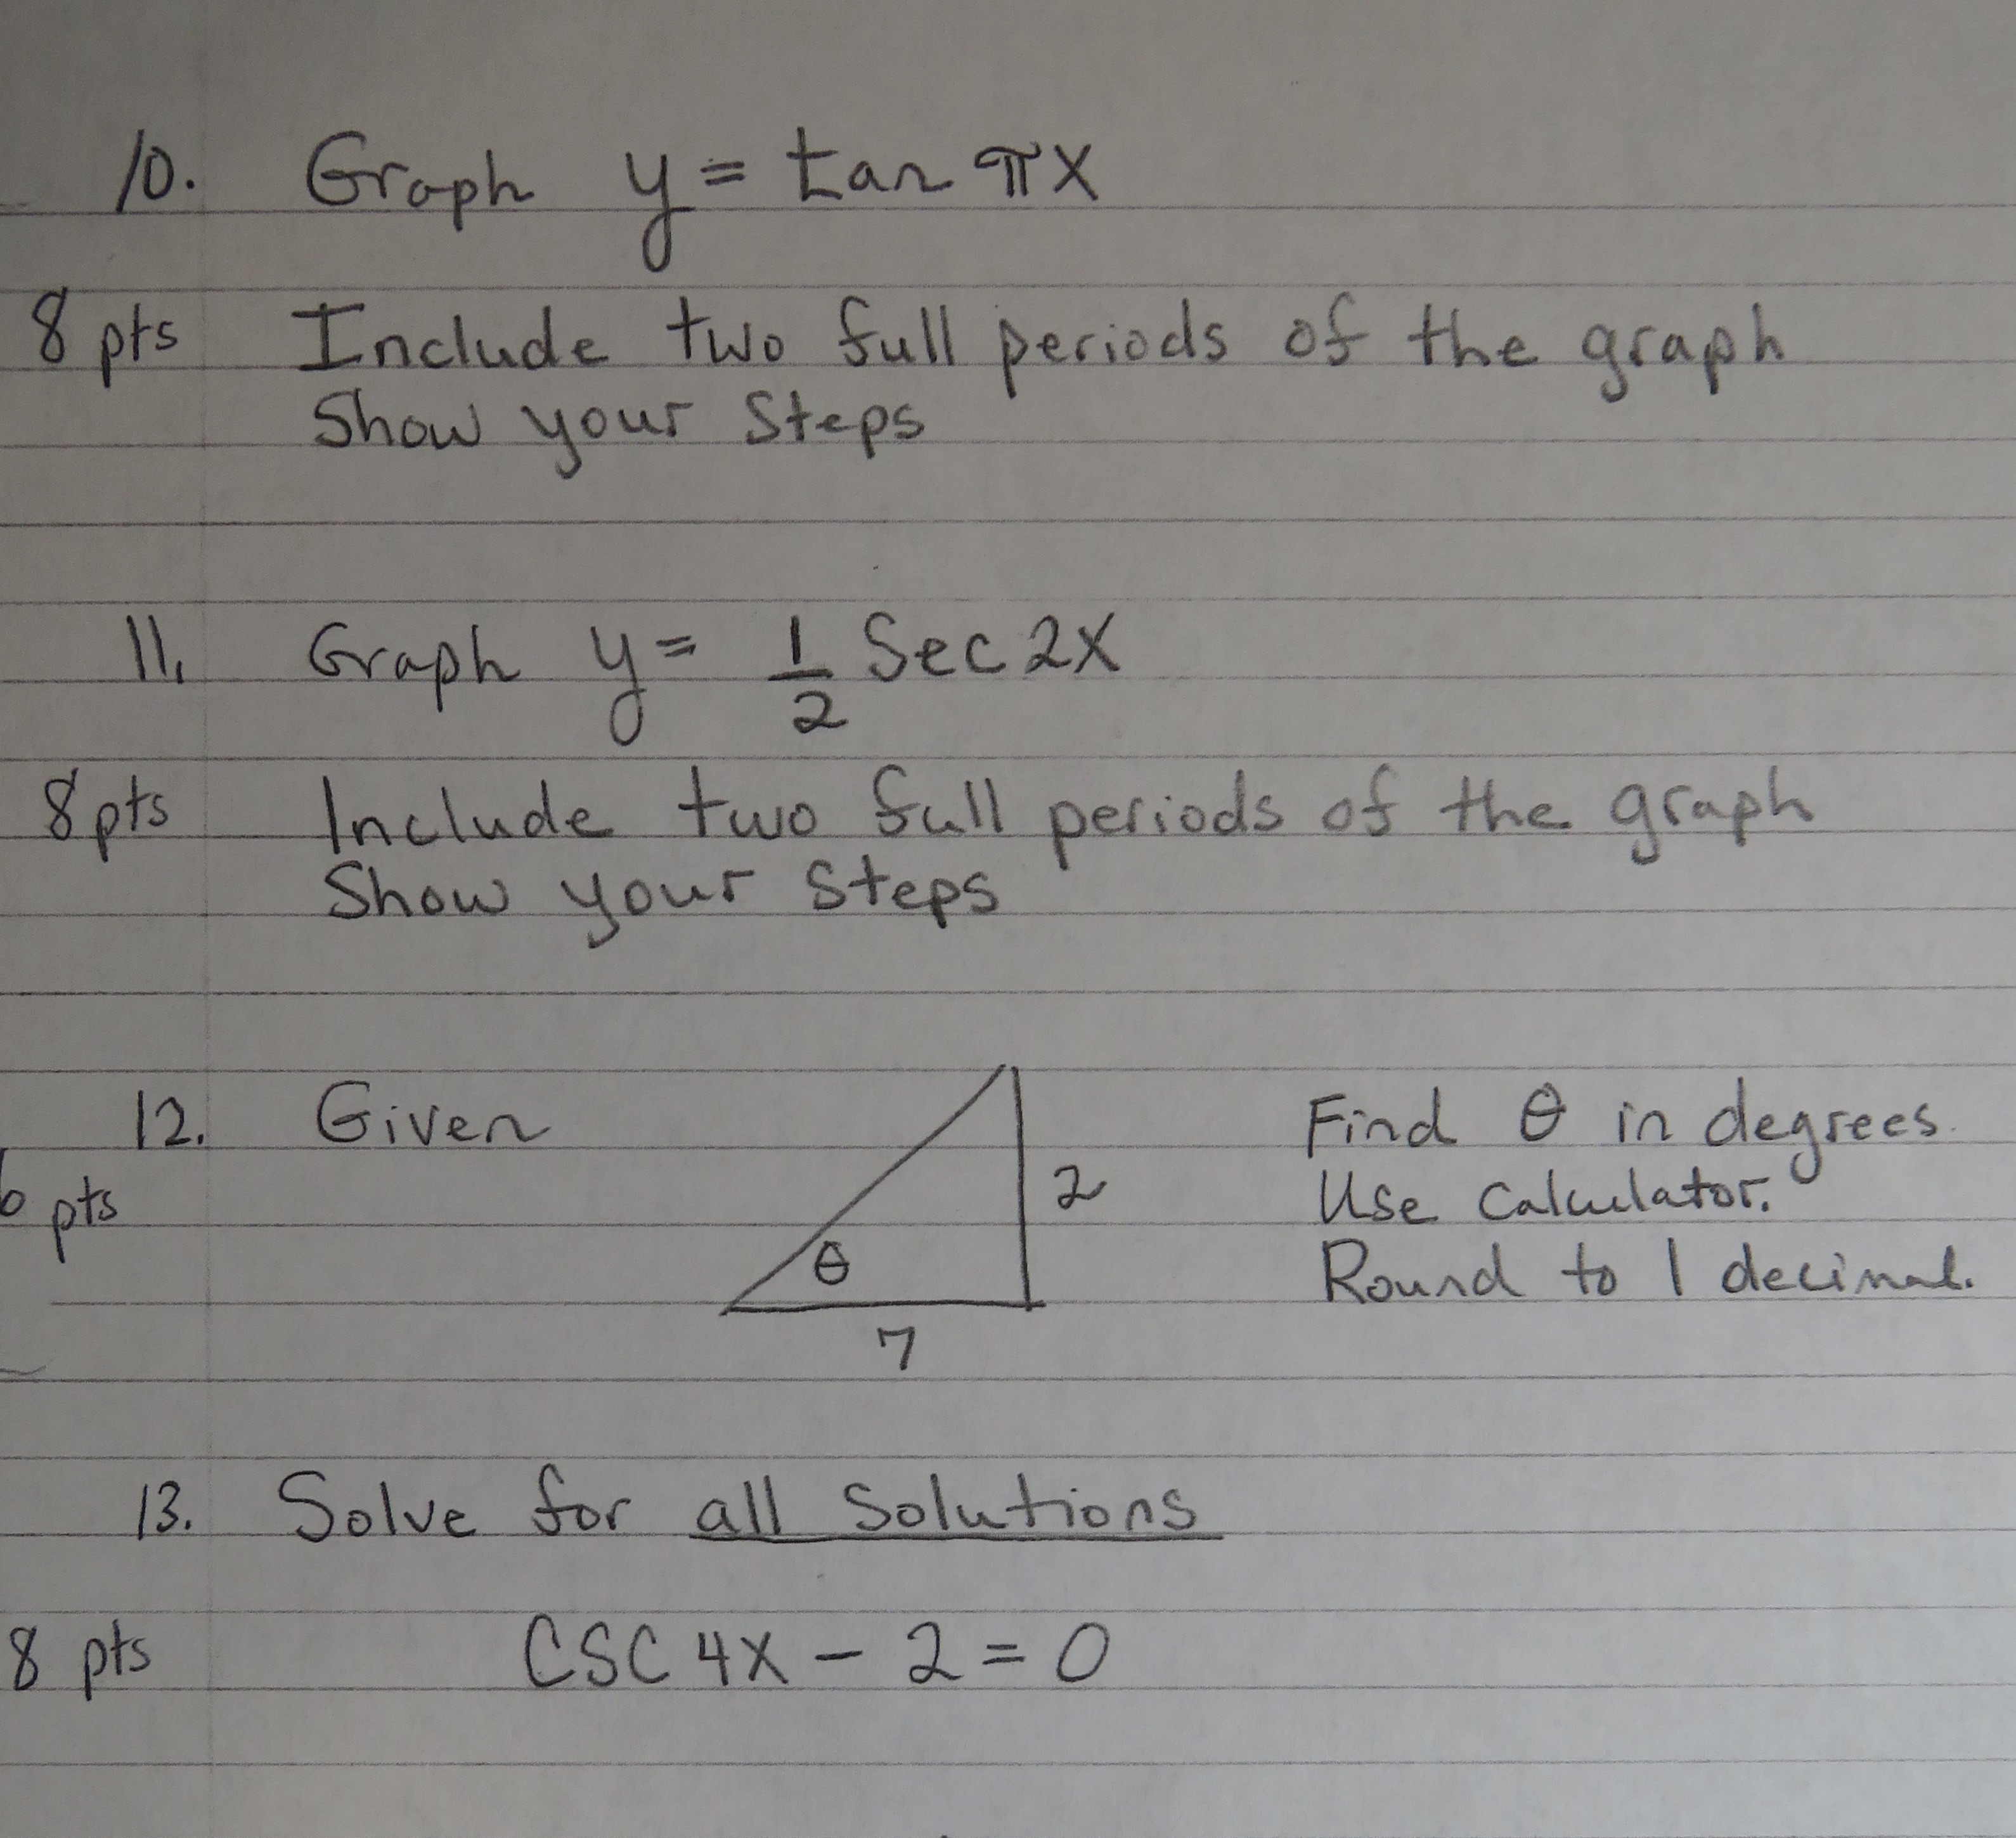 10. Graph y = tan πx
8 pts Include two full periods of the graph
Show your steps
11. Graph y = 1/2 Sec 2x
8 pts Include two full periods of the graph
Show your steps
12. Given 2 Find θ in degrees.
pts Use calculator.
θ Round to 1 decimal.
7
13. Solve for all solutions
8 pts CSC 4x - 2 = 0